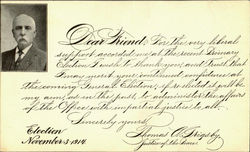 Dear Friend: For the very liberal
support accorded me at the recent Primary
Election I wish to thank you and trust that
I may merit your continued confidence at
the coming General Election. If re-elected it will be
my aim, as in the past, to administer the affairs
of the Office with impartial justice to all.
Sincerely yours,
Election
Thomas
November 3 1914